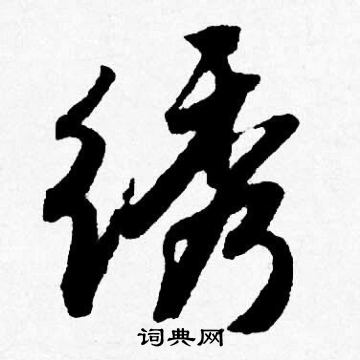 绣
词典网